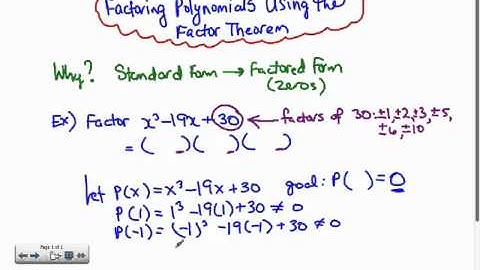 Factoring Polynomials Using the
Factor Theorem
Why? Standard Form → Factored Form
(zeros)
Ex) Factor x³-19x+30 ← factors of 30: ±1, ±2, ±3, ±5,
±6, ±10
= (   )(   )(   )
Let P(x) = x³-19x+30 goal: P( ) = 0
P(1) = 1³-19(1)+30 ≠ 0
P(-1) = (-1)³ -19(-1)+30 ≠ 0
Page 1 of 1